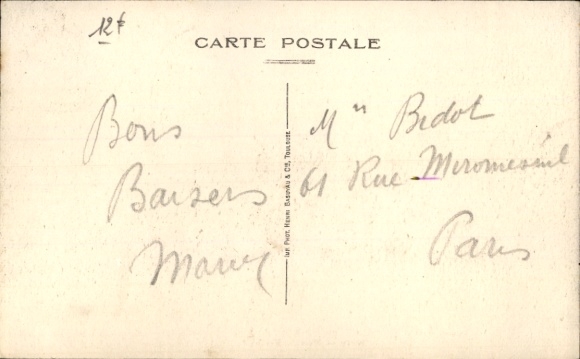 12f
CARTE POSTALE
Bons
Baisers
Mn Bedot
61 Rue Miromesnil
Paris
IMP. PHOT. HENRI BASUYAU & Cie, TOULOUSE